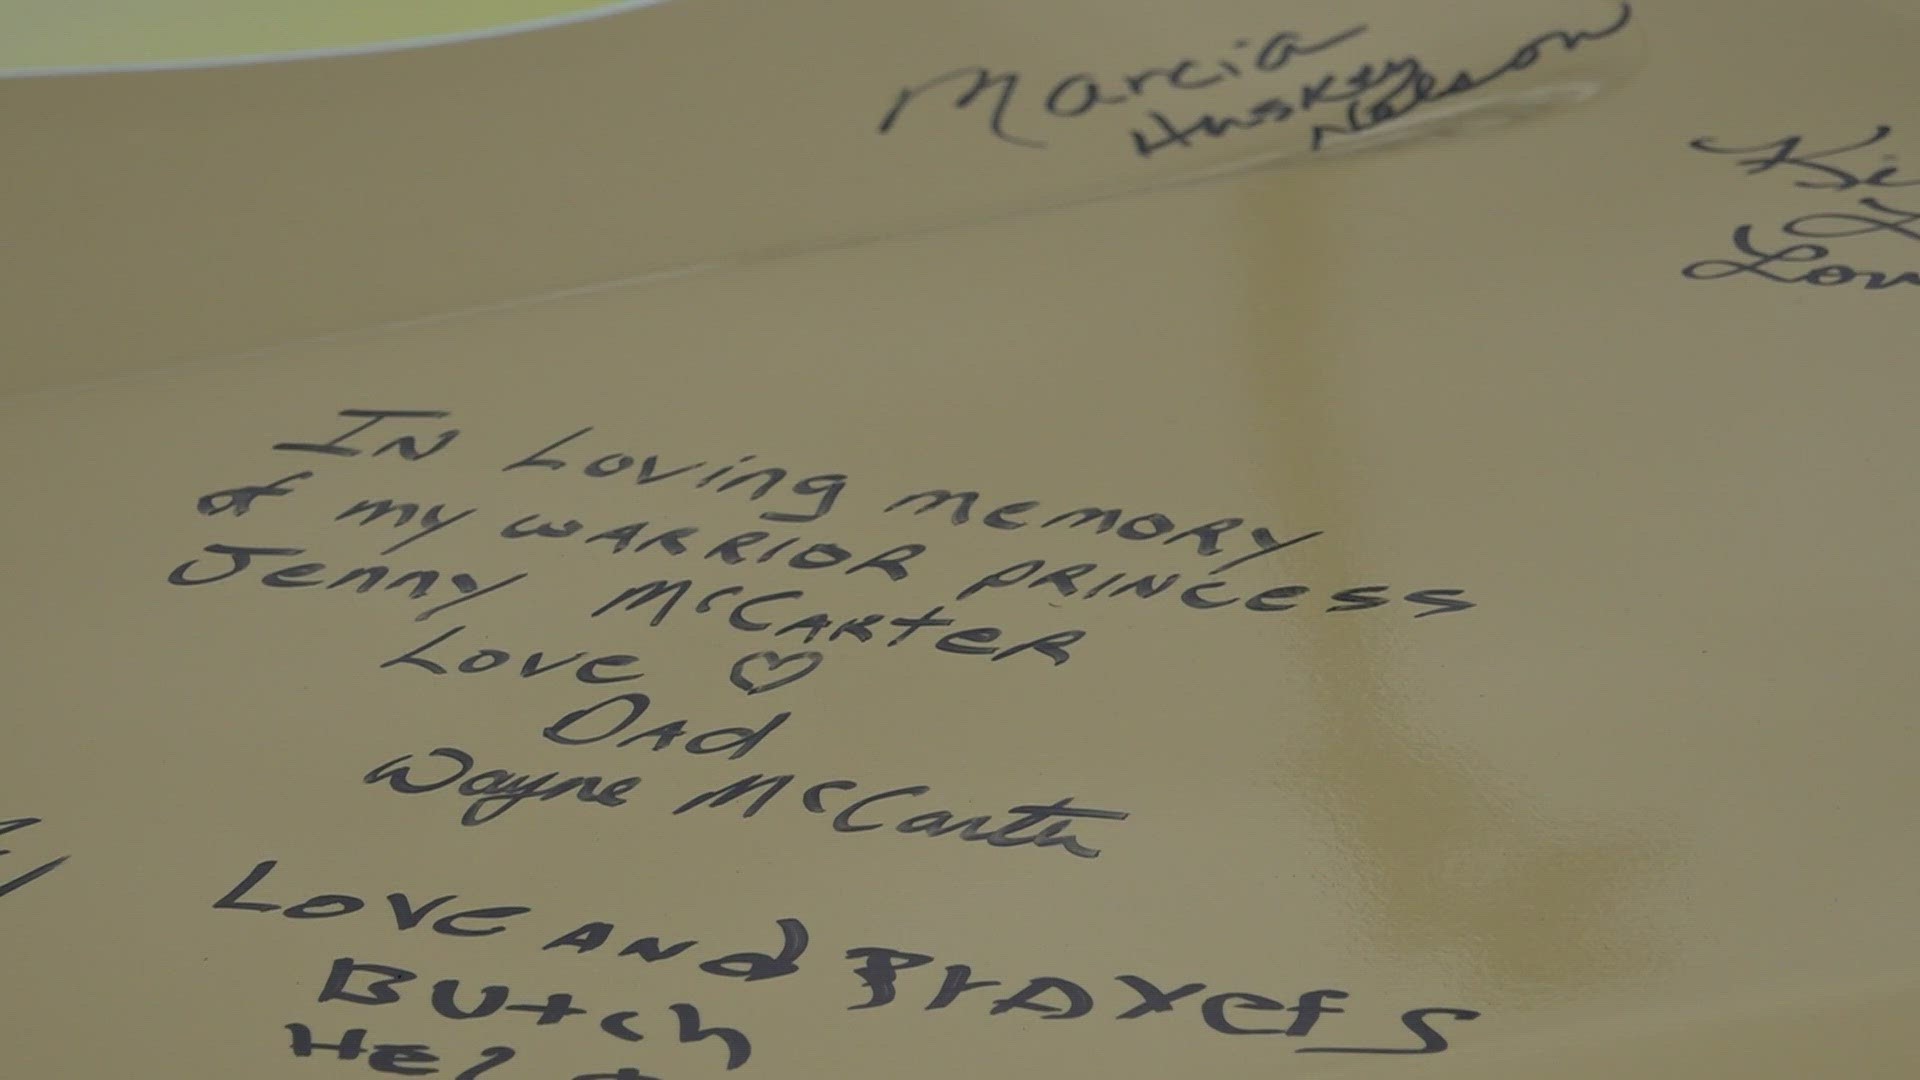 Marcia
Huskey
Nelson
Lov
IN Loving memORY
of my WARRIOR PRINCESS
Jenny McCARteR
Love ♡
DAd
Wayne McCarter
LOVE ANd PrAYerS
Butch